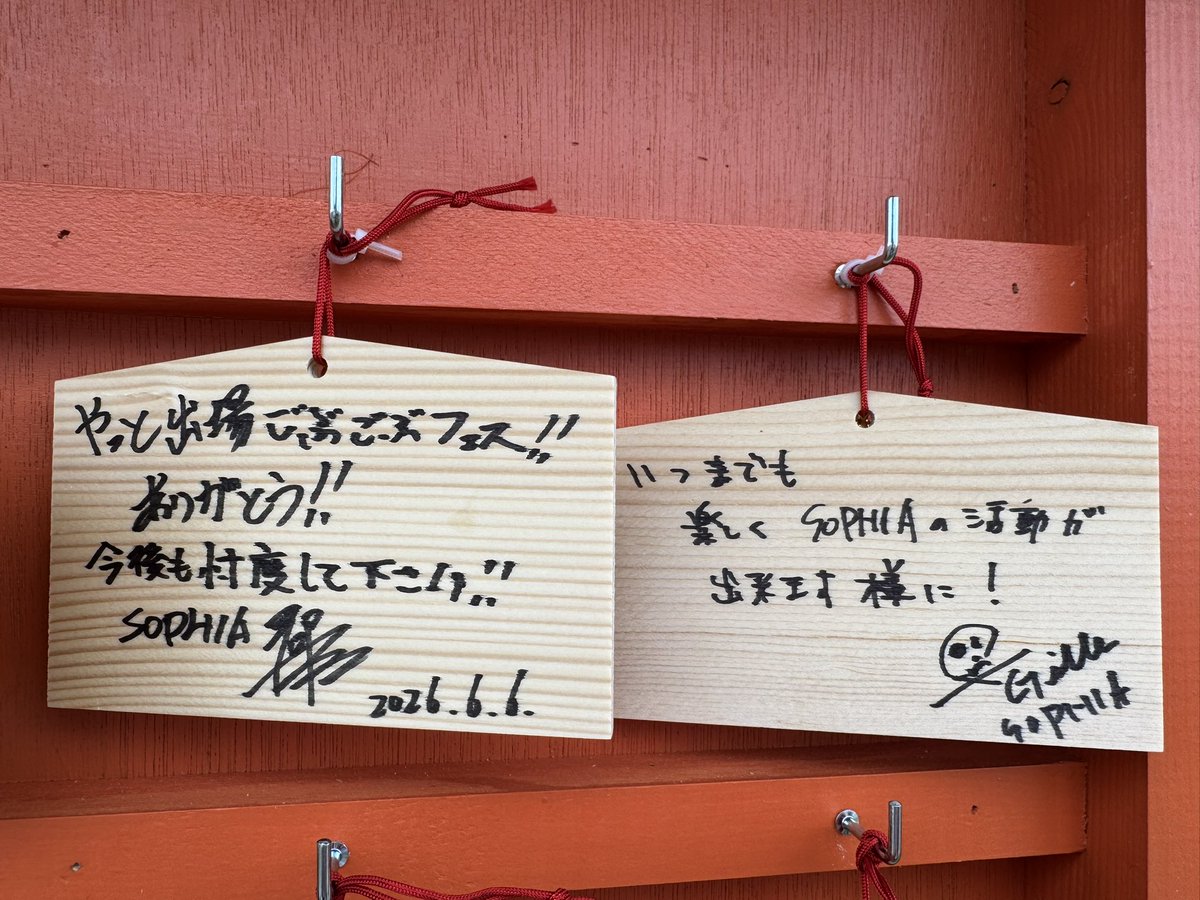 やっと出場ごぶごぶフェス!!
ありがとう!!
今後も忖度して下さいね!!
SOPHIA
2026.6.6.
いつまでも
楽しく SOPHIAの活動が
出来ます様に!
SOPHIA